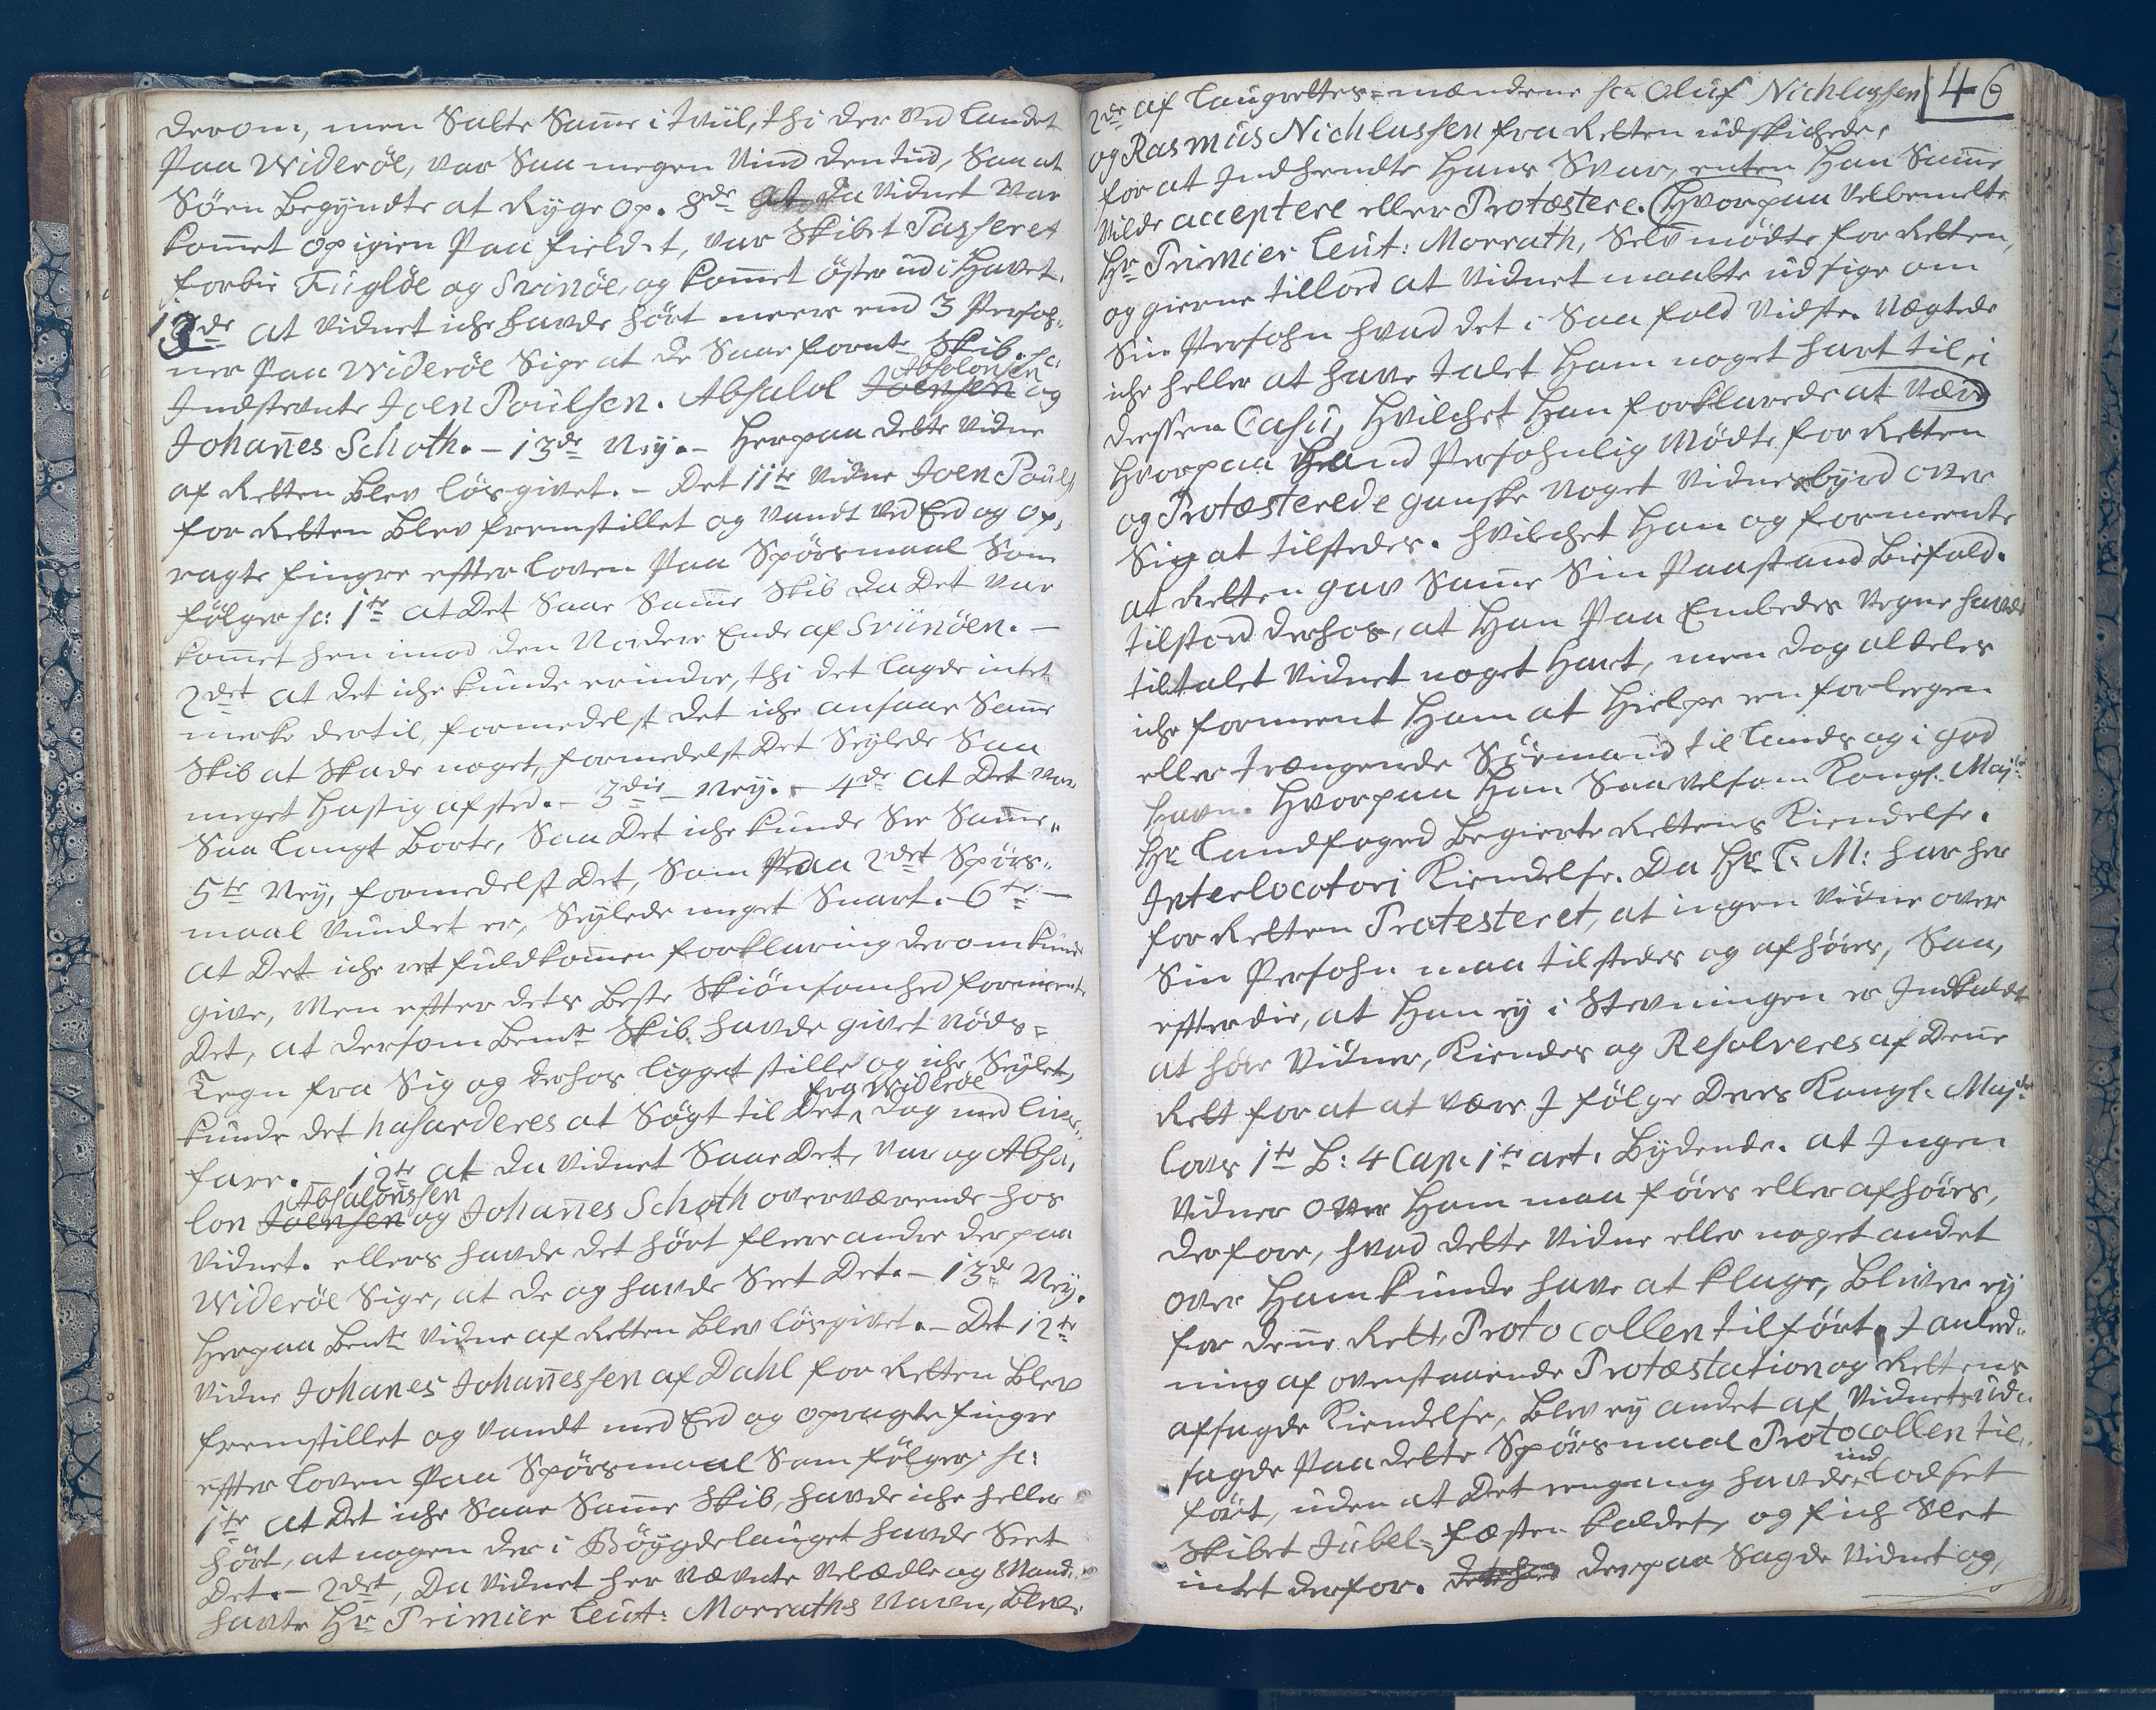 derom, men Satte Sam̄e i tviil, thi der ved Landet
Paa Widerøe, var Saa megen Vind den tiid, Saa at
Søen begyndte at Ryge op. 8de da Vidnet var
kom̄et op igien Paa fieldet, var Skibet Passeret
forbie Fügløe og Svinøe, og kom̄et øster ud i Havet.
12de at Vidnet iche havde hørt meere end 3 Persoh-
ner Paa Widerøe Sige at de Saae fornte Skib. sc:
Absolonsen
Indstevnte Joen Poulsen. Absalol Joensen og
Johan̄es Schoth. - 13de Ney. - Herpaa dette Vidne
af Retten blev løsgivet. - Det 11te Vidne Joen Pouls.
for Retten blev fremstillet og vandt ved Eed og op,
ragte fingre effter loven Paa Spørsmaal Som
følger sc: 1te at Det Saae Sam̄e Skib da Det var
kom̄et hen imod den Nordere Ende af Sviinøen. -
2det at det iche kunde erindre, thi det lagde intet
merke dertil, formedelst det iche ansaae Sam̄e
Skib at Skade noget, formedelst Det Seylede Saa
meget hastig afsted. - 3die Ney. - 4de at Det var
Saa langt borte, Saa Det iche kunde See Sam̄e.
5te Ney, formedelst Det, Som Paa 2det Spørs-
maal Vundet er, Seylede meget Snart. - 6te -
at Det iche ret fuldkom̄en forklaring derom kunde
give, Men effter dets beste Skiønsomhed formeente
Det, at dersom bemte Skib havde givet Nøds=
Tegn fra Sig og derhos ligget stille og iche Seylet,
fra Widerøe
kunde det hasarderes at Søgt til Det, dog med livs-
fare. - 12te at da Vidnet Saae Det, var og Absa-
Absalonssen
lon Joensen og Johan̄es Schoth overværende hos
Vidnet. ellers havde det hørt fleere andre der paa
Widerøe Sige, at de og havde Seet Det. - 13de Ney.
Herpaa bemte Vidne af Retten blev løsgivet. - Det 12te
Vidne Johanes Johan̄essen af Dahl for Retten blev
fremstillet og vandt med Eed og opragte fingre
effter loven Paa Spørsmaal Som følger sc:
1te at Det iche Saae Sam̄e Skib, havde iche heller
hørt, at nogen der i Bøygdelauget havde Seet
Det. - 2det, Da Vidnet her nævnte Velædle og Mand-
havte Hr Primier Leut: Morraths Navn, blev
46
2de af Laugrettes-mændene sc: Oluf Nichlassen
og Rasmus Nichlassen fra Retten udskichede,
for at Indhendte Hans Svar, enten Han Sam̄e
vilde acceptere eller Protæstere. Hvorpaa velbemelte
Hr Primier Leut: Morrath, Selv mødte for Retten,
og gierne tillod at Vidnet maatte udsige om
Sin Persohn hvad det i Saa fald Vidste. Nægtede
iche heller at have talet Ham noget hart til, i
dessen Casu, hvilchet Han forklarede at være
Hvorpaa Hand Persohnlig Mødte for Retten
og Protæsterede ganske noget Vidnesbyrd over
Sig at tilstedes. hvilchet Han og formeente
at Retten gav Sam̄e Sin Paastand biefald.
tilstoed derhos, at Han Paa Embedes Vegne havde
tiltalet Vidnet noget Hart, men dog aldeles
iche forment Ham at hielpe en forlegen
eller trængende Søemand til lands og i god
havn. Hvorpaa Han Saavelsom Kongl. Majts
Hr Landfoged begierte Rettens Kiendelse.
Interlocotori Kiendelse. Da Hr L. M: har her
for Retten Protesteret, at ingen Vidne over
Sin Persohn maa tilstedes og afhøres, Saa,
effterdie, at Han ey i Stevningen er Indkaldt
at høre Vidner, Kiendes og Resolveres af Den̄e
Rett for at at være I følge Deres Kongl. Majts
lovs 1te B: 4 Cap. 1te art. bydende. at Ingen
Vidner over Ham maa føres eller afhøres,
derfore, hvad dette Vidne eller noget andet
over Ham kunde have at klage, bliver ey
for den̄e Rett, Protocollen tilført. I anled-
ning af ovenstaaende Protæstation og Rettens
afsagde Kiendelse, blev ey andet af Vidnets ud-
sagde Paa dette Spørsmaal Protocollen til-
ind
ført, uden at Det eengang havde lodset
Skibet Jubel-fæsten kaldet, og fich Slet
intet derfor. derpaa Sagde Vidnet og,